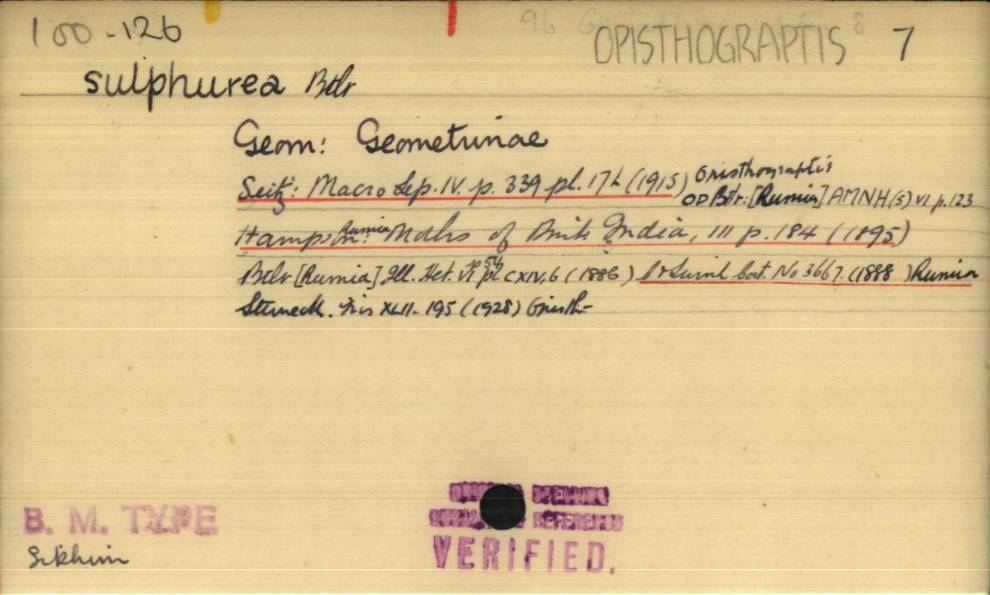 100-126
OPISTHOGRAPTIS 7
sulphurea Btlr
Geom: Geometrinae
Seitz: Macro Lep. IV. p. 339 pl. 17h (1915) Opisthograptis
OD Btlr: [Rumia] AMNH (5) VI p. 123
Hampson: Rumia Moths of Brit India, III p. 184 (1895)
Btlr [Rumia] Ill. Het. VI p 54 pl CXIV, 6 (1886) Cat. No 3667. (1888) Rumia
Sterneck. Iris XLII. 195 (1928) Opisth-
B. M. TYPE
Sikhim
VERIFIED.